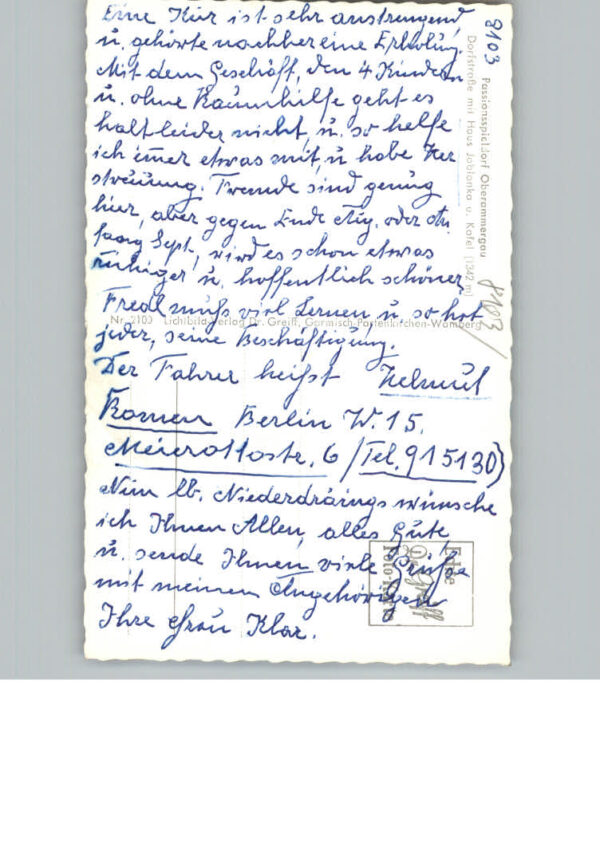 Eine Kur ist sehr anstrengend
u. gehörte nachher eine Erholung.
Mit dem Geschäft, den 4 Kindern
u. ohne Raumhilfe geht es
halt leider nicht, u. so helfe
ich imer etwas mit, u habe Zer
streuung. Fremde sind genug
hier, aber gegen Ende Aug. oder An
fang Sept, wird es schon etwas
ruhiger u. hoffentlich schöner.
Fredl muß viel Lernen u. so hat
jeder, seine Beschäftigung.
Der Fahrer heißt Helmut
Berlin W. 15.
Meierottostr. 6 (Tel. 915130)
Nun lb. Niederdrärings wünsche
ich Ihnen Allen, alles Gute
u. sende Ihnen viele Grüße
mit meinen Angehörigen
Ihre Frau Klar.
2103
Passionsspieldorf Oberammergau
Dorfstraße mit Haus Jablonka u. Kofel (1342 m)
Nr. 2103 Lichtbild-Verlag Dr. Greiff, Garmisch-Partenkirchen-Wamberg
Echte
Dr. Greiff
Foto-Karte